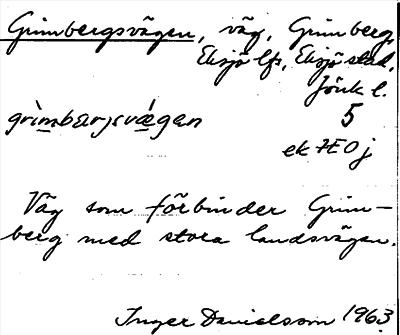 Grimbergsvägen, väg, Grimberg,
Eksjö lfs, Eksjö stad,
Jönk l.
5
ek 7E0j
Väg som förbinder Grim-
berg med stora landsvägen.
Inger Danielsson 1963